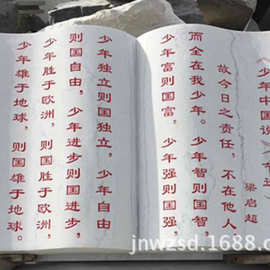 少年中国说
梁启超
故今日之责任，不在他人
而全在我少年。少年智则国智，
少年富则国富，少年强则国强，
少年独立则国独立，少年自由
则国自由，少年进步则国进步，
少年胜于欧洲，则国胜于欧洲，
少年雄于地球，则国雄于地球。
jnwzsd.1688.c